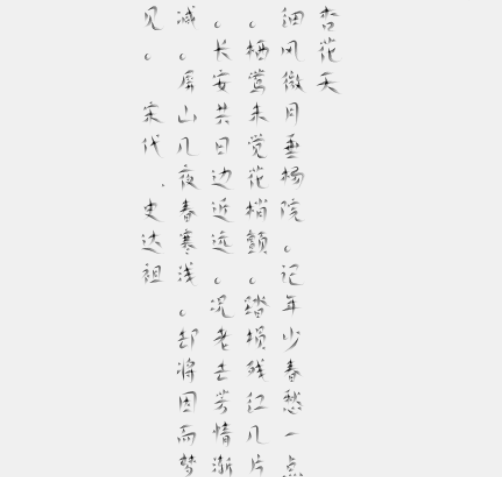 杏花天
细风微月垂杨院。记年少春愁一点
。栖莺未觉花梢颤。踏损残红几片
。长安共日边近远。况老去芳情渐
减。屏山几夜春寒浅。却将因而梦
见。宋代.史达祖